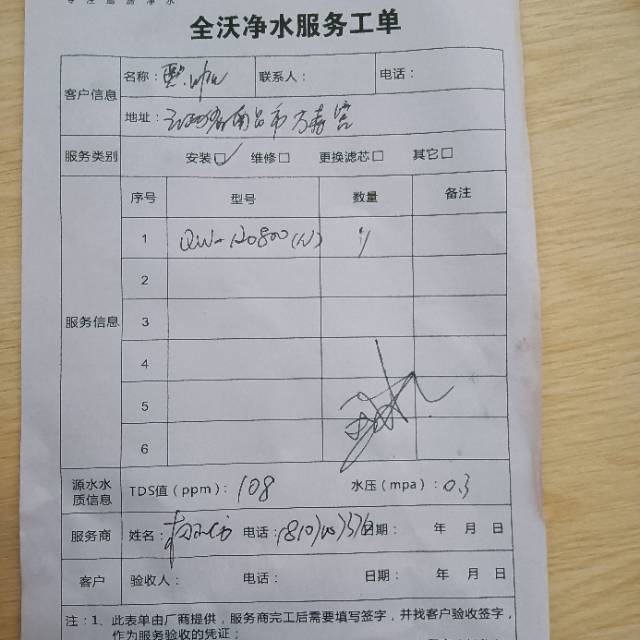 全沃净水服务工单
客户信息 名称： 联系人： 电话：
地址：江西省南昌市
服务类别 安装☑ 维修□ 更换滤芯□ 其它□
服务信息 序号 型号 数量 备注
1 QW-R0800(N) 1
2
3
4
5
6
源水水质信息 TDS值（ppm）：108 水压（mpa）：0.3
服务商 姓名： 电话： 日期： 年 月 日
客户 验收人： 电话： 日期： 年 月 日
注：1、此表单由厂商提供，服务商完工后需要填写签字，并找客户验收签字，
作为服务验收的凭证；